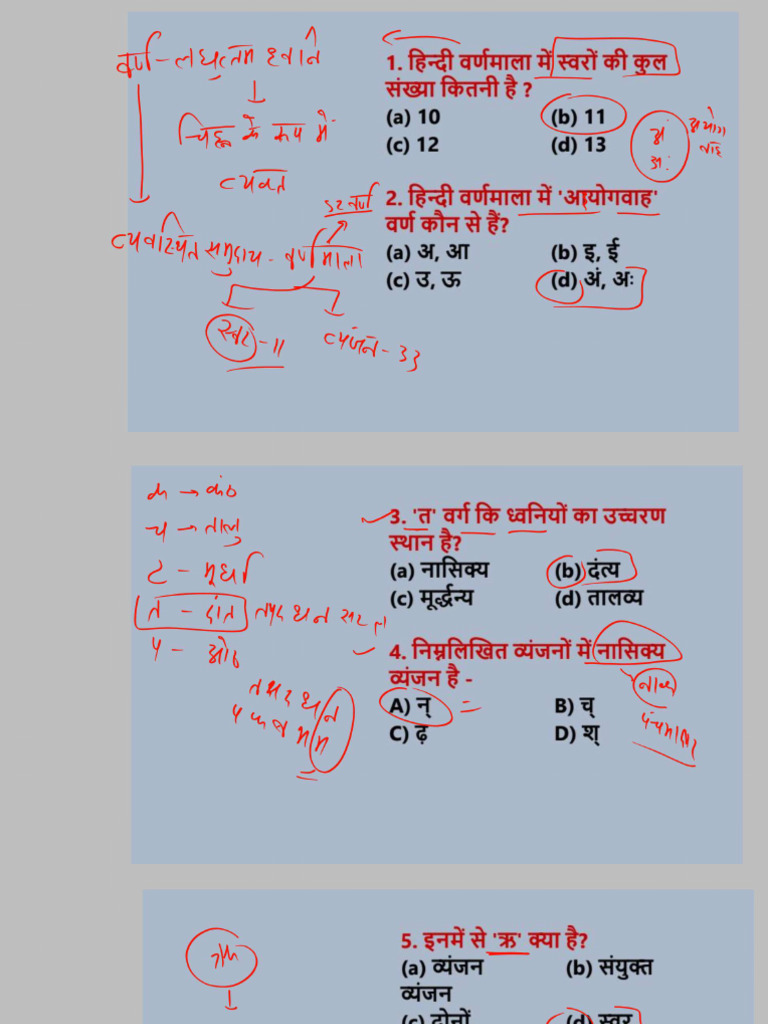 वर्ण - लघुत्तम ध्वनि
चिह्न के रूप में
व्यक्त
५२ वर्ण
व्यवस्थित समुदाय - वर्णमाला
स्वर - 11
व्यंजन - 33
1. हिन्दी वर्णमाला में स्वरों की कुल
संख्या कितनी है ?
(a) 10 (b) 11
(c) 12 (d) 13
अं
अः
2. हिन्दी वर्णमाला में 'आयोगवाह'
वर्ण कौन से हैं?
(a) अ, आ (b) इ, ई
(c) उ, ऊ (d) अं, अः
क → कंठ
च → तालु
ट - मूर्धा
त - दांत
प - ओठ
त थ द ध न
प फ ब भ म
3. 'त' वर्ग कि ध्वनियों का उच्चरण
स्थान है?
(a) नासिक्य (b) दंत्य
(c) मूर्द्धन्य (d) तालव्य
4. निम्नलिखित व्यंजनों में नासिक्य
व्यंजन है -
A) न् B) च्
C) ढ़ D) श्
पंचमाक्षर
ऋ
5. इनमें से 'ऋ' क्या है?
(a) व्यंजन (b) संयुक्त
व्यंजन
(c) दोनों (d) स्वर